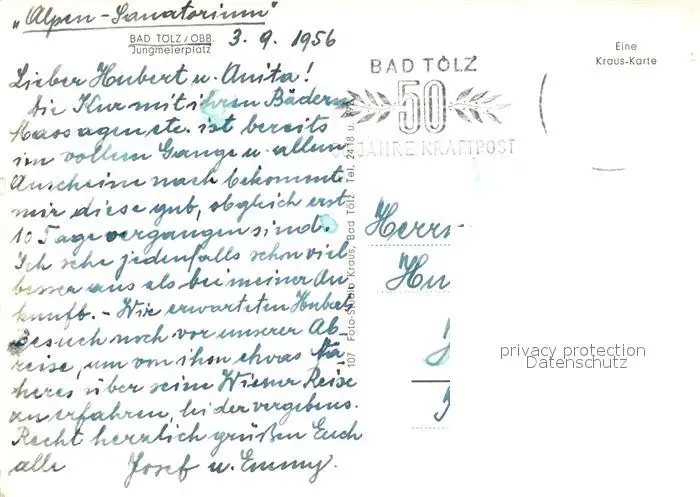 „Alpen-Sanatorium"
BAD TÖLZ / OBB.
Jungmeierplatz
3. 9. 1956
Lieber Hubert u. Anita!
Die Kur mit ihren Bädern,
Massagen etc. ist bereits
im vollem Gange u. allem
Anscheine nach bekommt
mir diese gut, obgleich erst
10 Tage vergangen sind.
Ich sehe jedenfalls schon viel
besser aus als bei meiner An
kunft. - Wir erwarteten Huberts
Besuch noch vor unserer Ab
reise, um von ihm etwas Nä
heres über seine Wiener Reise
zu erfahren, leider vergebens.
Recht herzlich grüßen Euch
alle Josef u. Emmy.
107 Foto-Studio Kraus, Bad Tölz Tel. 2418 u.
BAD TÖLZ
50
JAHRE KRAFTPOST
Eine
Kraus-Karte
Herrn
Hu
privacy protection
Datenschutz